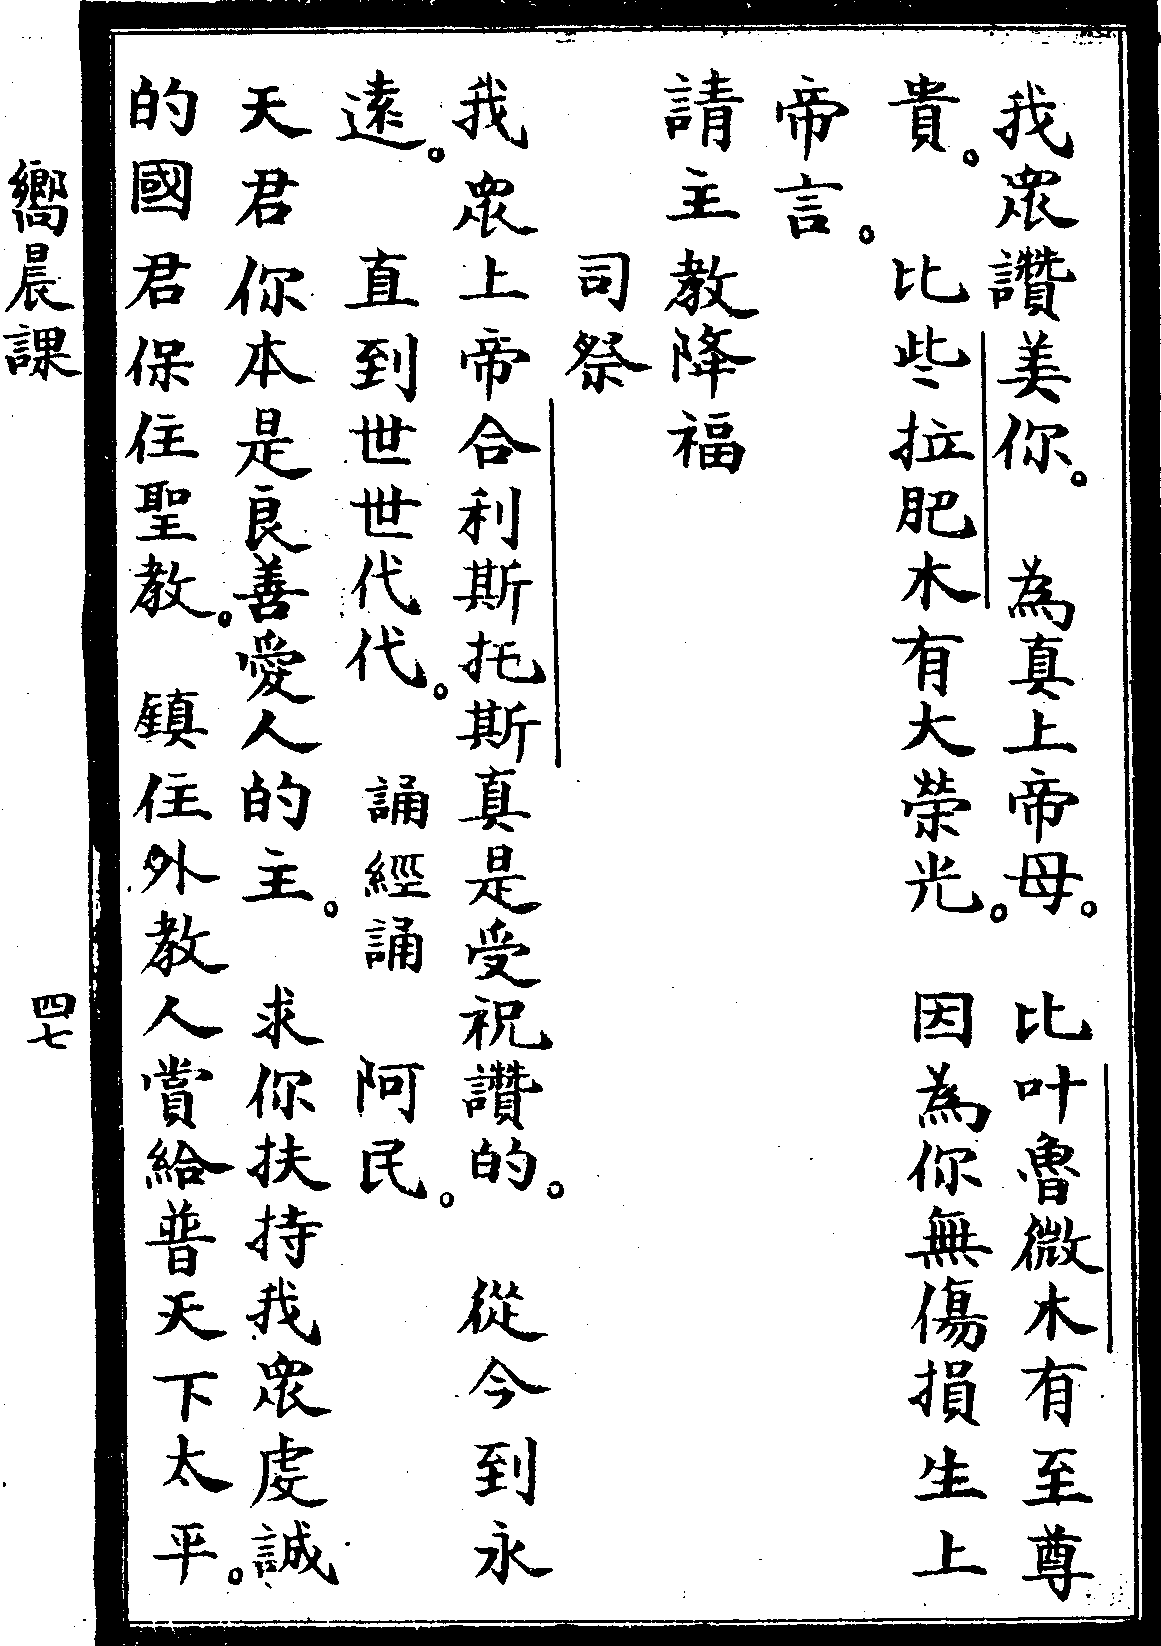 我眾讚美你。 為真上帝母。 比叶魯微木有至尊
貴。 比些拉肥木有大榮光。 因為你無傷損生上
帝言。
請主教降福
司祭
我眾上帝合利斯托斯真是受祝讚的。 從今到永
遠。 直到世世代代。 誦經誦 阿民。
天君你本是良善愛人的主。 求你扶持我眾虔誠
的國君保住聖教。 鎮住外教人賞給普天下太平。
嚮晨課
四七